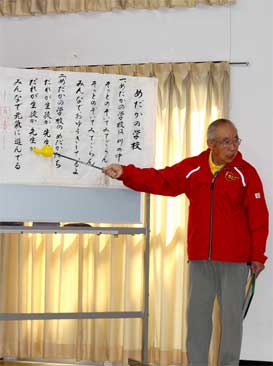 めだかの学校
一、めだかの学校は 川の中
そっとのぞいて みてごらん
そっとのぞいて みてごらん
みんなでおゆうぎしているよ
二、めだかの学校の めだかたち
だれが生徒か 先生か
だれが生徒か 先生か
みんなで元気に 遊んでる